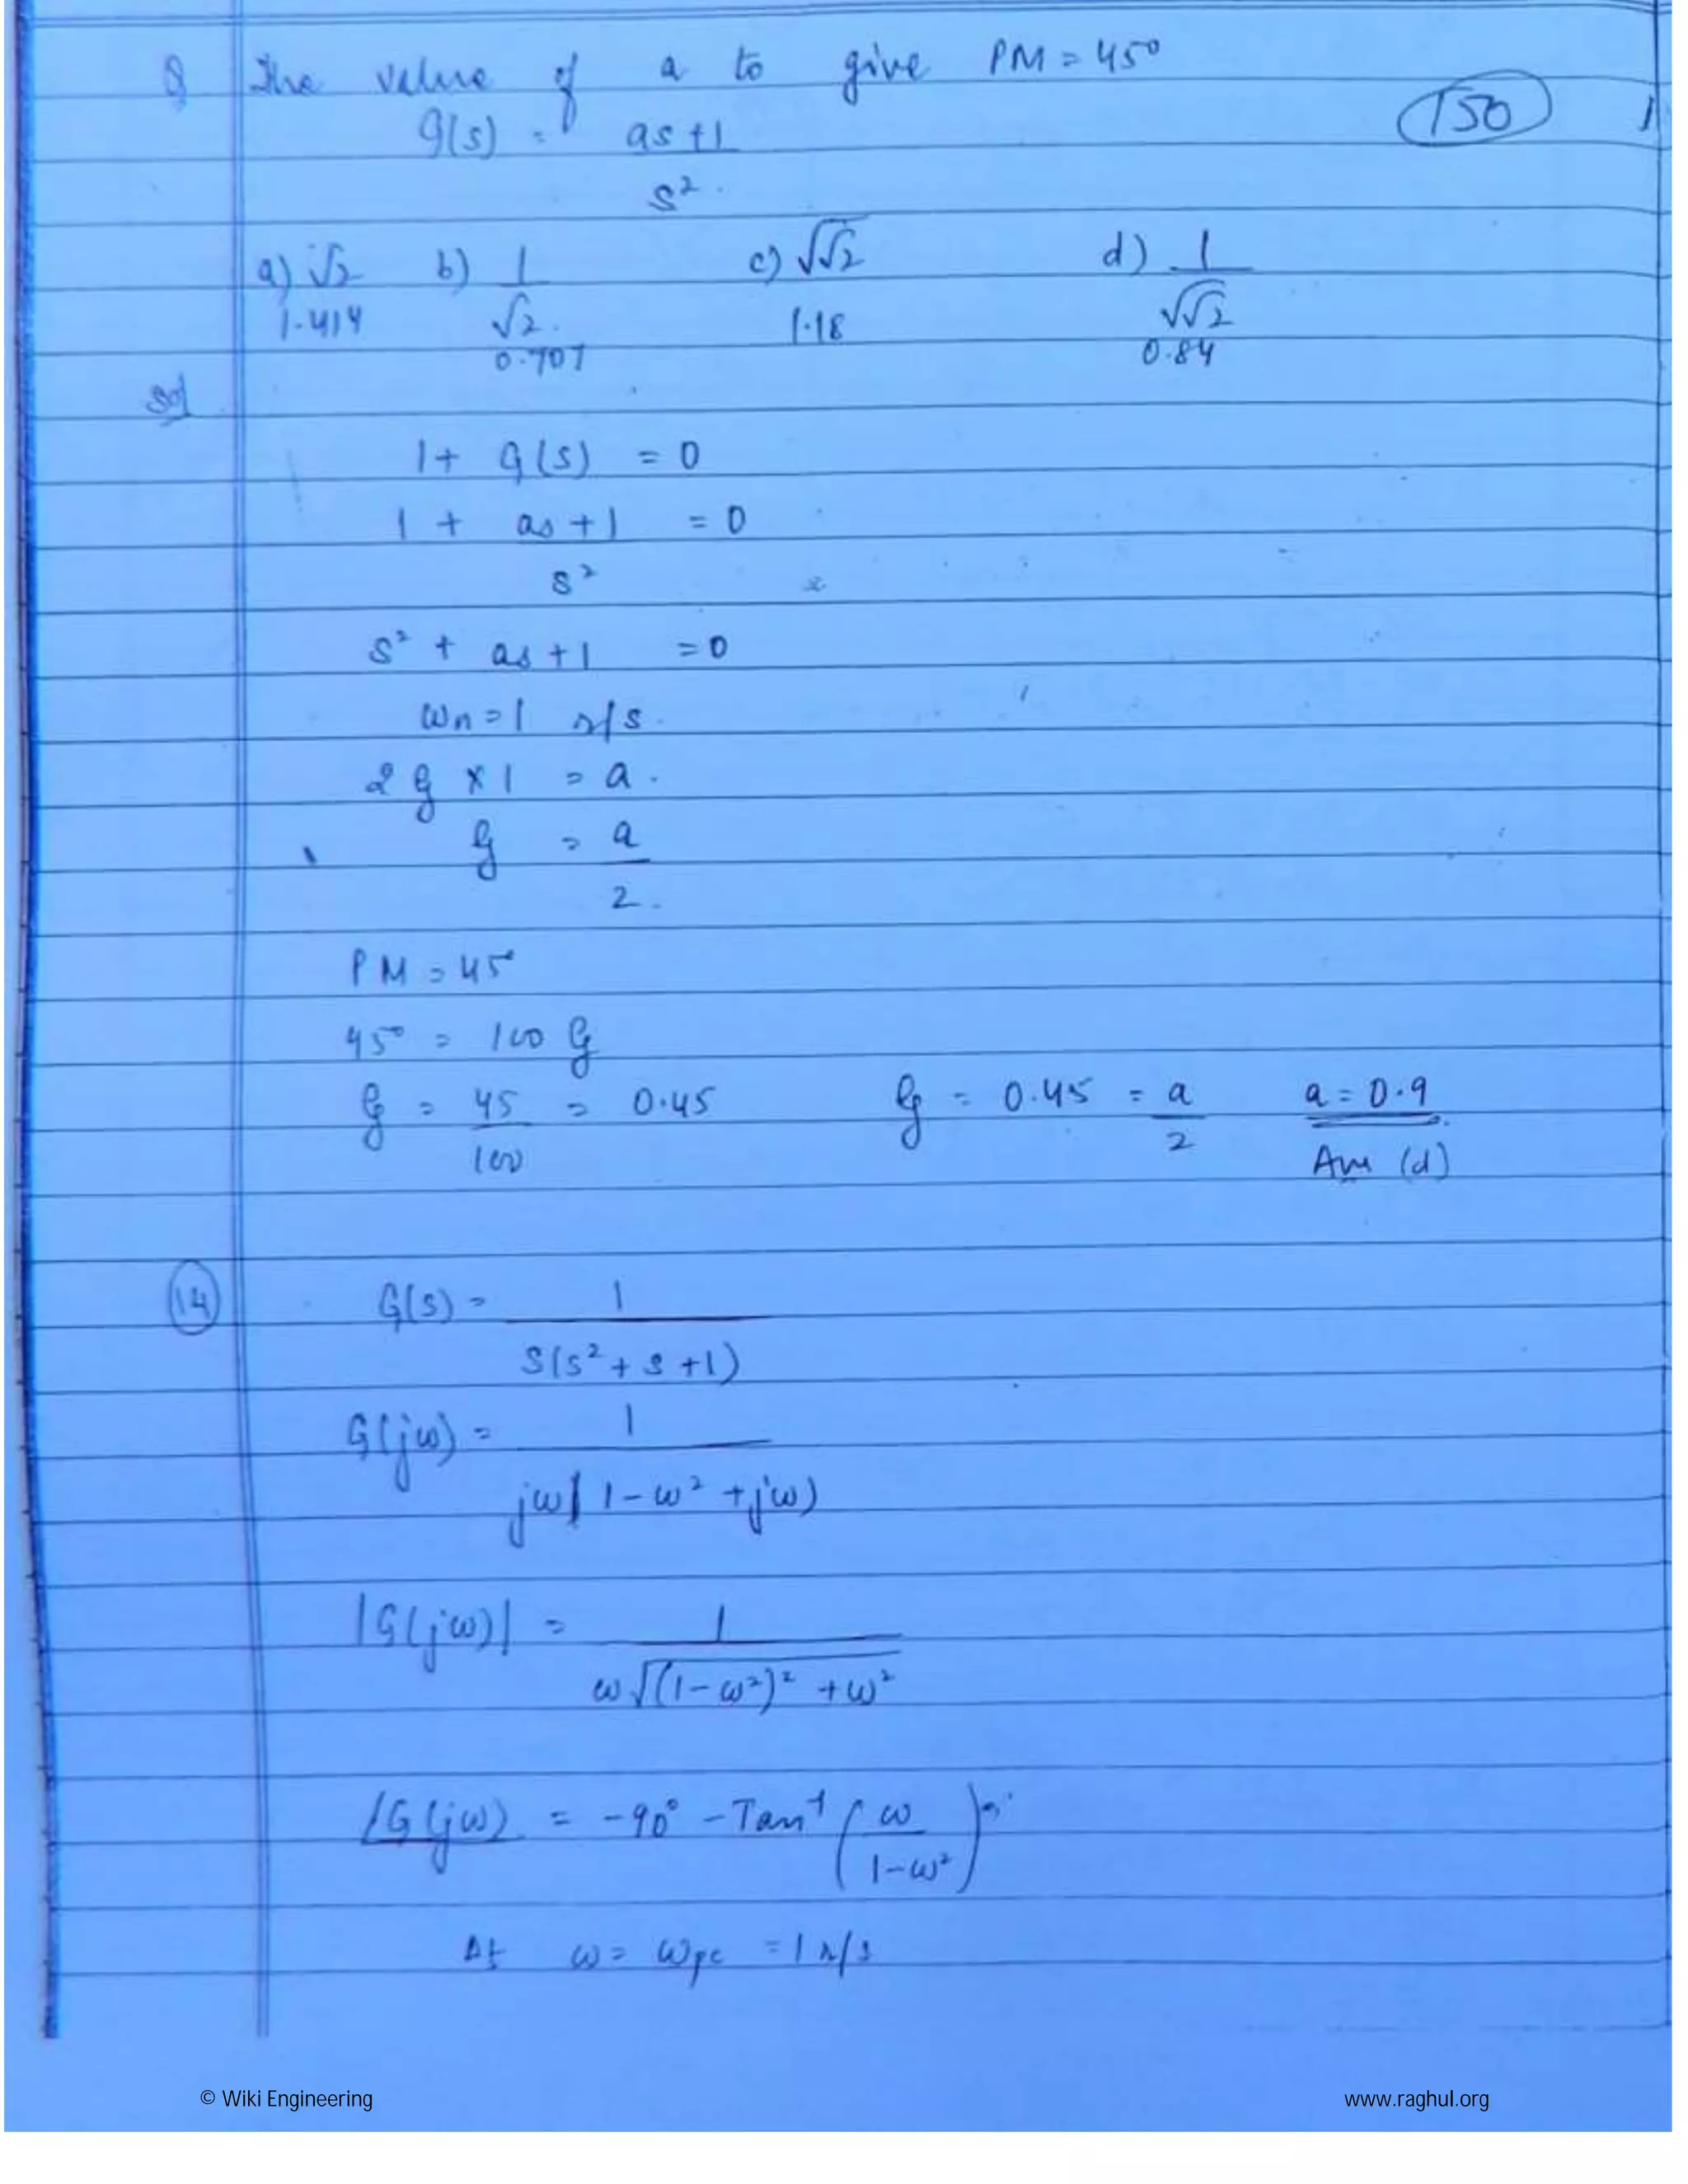 Q The value of a to give PM = 45°
150
G(s) = as+1
s²
a) √2 b) 1 c) √√2 d) 1
1.414 √2 1.18 √√2
0.707 0.84
Sol
1 + G(s) = 0
1 + as+1 = 0
s²
s² + as+1 = 0
ωn = 1 r/s.
2ξ × 1 = a.
ξ = a
2.
PM = 45°
45° = 100 ξ
ξ = 45 = 0.45 ξ = 0.45 = a a = 0.9
100 2 Ans (d)
14 G(s) = 1
S(s²+s+1)
G(jω) = 1
jω(1-ω²+jω)
|G(jω)| = 1
ω√(1-ω²)²+ω²
∠G(jω) = -90° - Tan⁻¹ (ω
1-ω²)
At ω = ωpc = 1 r/s
© Wiki Engineering www.raghul.org